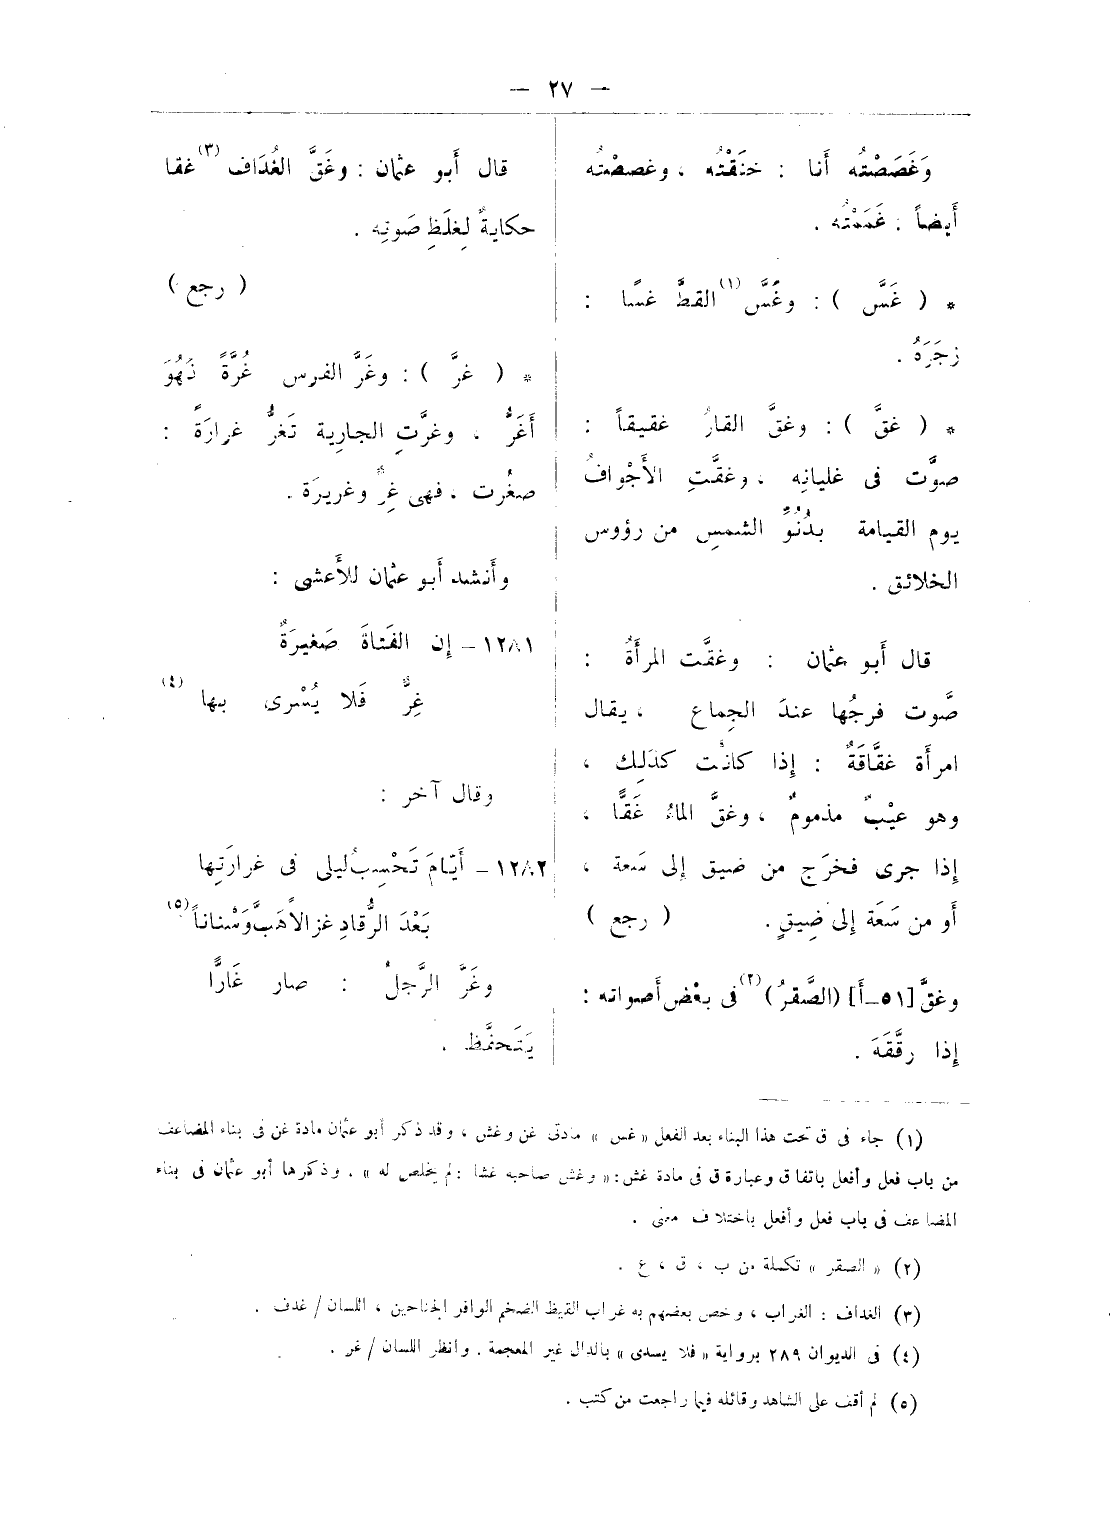 — ٢٧ —
وَغَصَصْتُه أنا : خنَقْتُه ، وغصصْتُه
أَيضاً : غَمَمْتُه .
* ( غَسَّ ) : وغَسَّ (١) القطَّ غسًا :
زجَرَهُ .
* ( غقَّ ) : وغقَّ القارُ غقيقاً :
صوَّت فى غليانِه ، وغقَّتِ الأَجْوافُ
يوم القيامة بدُنُوِّ الشمسِ من رؤوس
الخلائق .
قال أَبو عثمان : وغقَّت المرأَةُ :
صَّوت فرجُها عندَ الجِماع ، يقال
امرأَة غقَّاقَةٌ : إِذا كانْت كذَلِك ،
وهو عيْبٌ مذمومٌ ، وغقَّ الماءُ غَقًّا ،
إِذا جرى فخرَج من ضيق إِلى سَعة ،
أَو من سَعَة إِلى ضِيقٍ . ( رجع )
وغقَّ [٥١-أ] (الصَّقرُ) (٢) فى بعْض أَصواته :
إِذا رقَّقَهَ .
قال أَبو عثمان : وغَقَّ الغُدَاف (٣) غقا
حكايةٌ لِغلَظِ صَوتِه .
( رجع )
* ( غرَّ ) : وغَرَّ الفرس غُرَّةً فَهُوَ
أَغَرُّ ، وغرَّتِ الجارِية تَغرُّ غرارَةً :
صغُرت ، فهى غِرٌّ وغريرَة .
وأَنشد أَبو عثمان للأَعشى :
١٢٨١ - إِن الفَتاةَ صَغيرَةٌ
غِرٌّ فَلا يُسْرى بها (٤)
وقال آخر :
١٢٨٢ - أَيّامَ تَحْسِبُ ليلى فى غرارَتِها
بَعْدَ الرُّقادِ غزالاً هَبَّ وَسْناناً (٥)
وغَرَّ الرَّجلُ : صار غَارًّا
يَتَحفَّظ .
(١) جاء فى ق تحت هذا البناء بعد الفعل « غس » مادتى غن وغش ، وقد ذكر أبو عثمان مادة غن فى بناء المضاعف
من باب فعل وأفعل باتفاق وعبارة ق فى مادة غش : « وغش صاحبه غشا : لم يخلص له » . وذكرها أبو عثمان فى بناء
المضاعف فى باب فعل وأفعل باختلاف معنى .
(٢) « الصقر » تكملة من ب ، ق ، ع .
(٣) الغداف : الغراب ، وخص بعضهم به غراب القيظ الضخم الوافر الجناحين ، اللسان / غدف .
(٤) فى الديوان ٢٨٩ برواية « فلا يسدى » بالدال غير المعجمة . وانظر اللسان / غر .
(٥) لم أقف على الشاهد وقائله فيما راجعت من كتب .